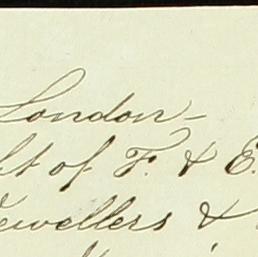 London -
of F. & E.
Jewellers &